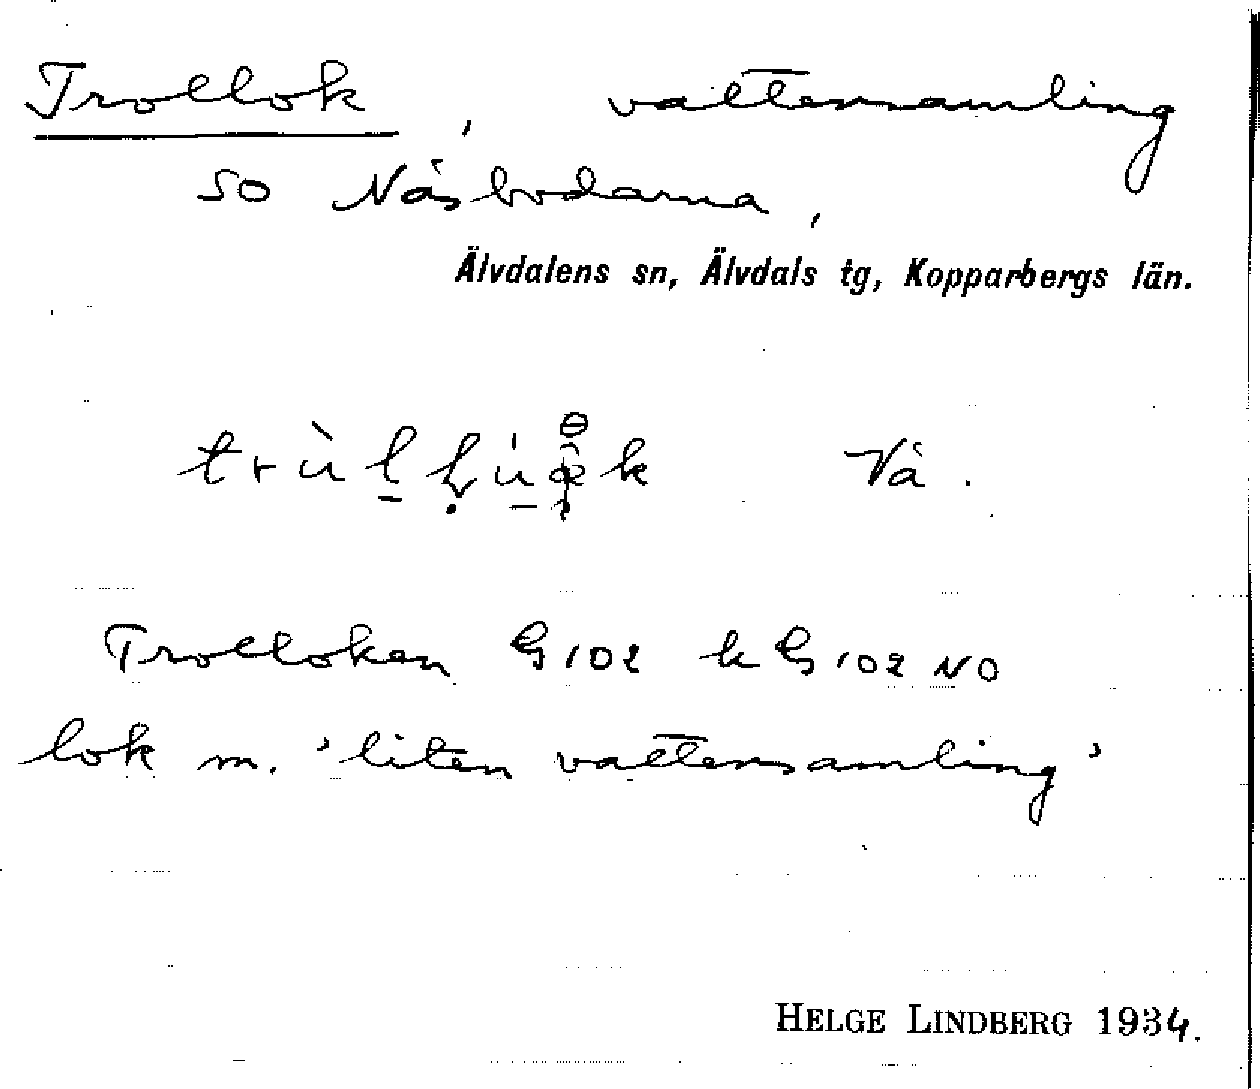 Trollok, vattensamling
SO Näsbodarna,
Älvdalens sn, Älvdals tg, Kopparbergs län.
Vå.
Trolloken G 102 k G 102 NO
lok m. 'liten vattensamling'
HELGE LINDBERG 1934.